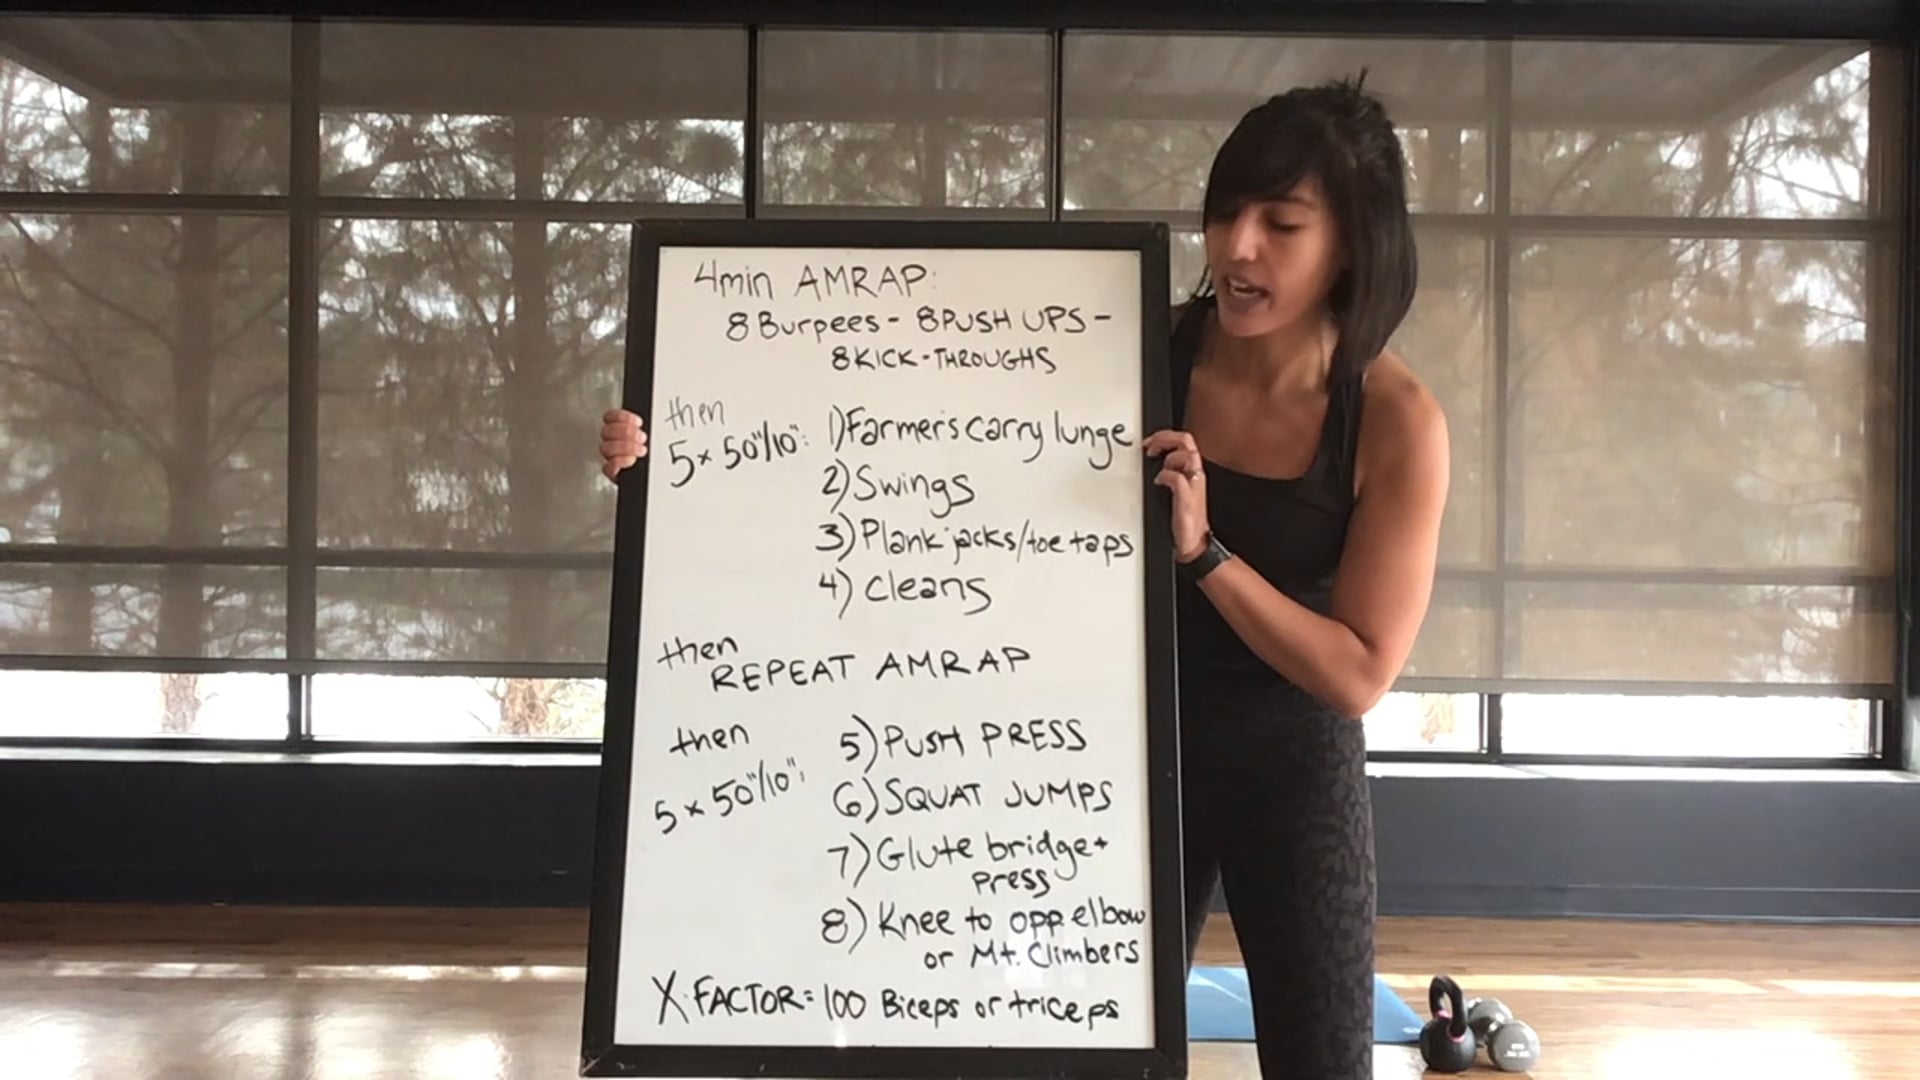 4min AMRAP:
8 Burpees - 8 PUSH UPS -
8 KICK-THROUGHS
then
5 x 50"/10": 1) Farmer's carry lunge
2) Swings
3) Plank jacks/toe taps
4) Cleans
then
REPEAT AMRAP
then
5) PUSH PRESS
5 x 50"/10":
6) SQUAT JUMPS
7) Glute bridge +
press
8) Knee to opp elbow
or Mt. Climbers
X-FACTOR = 100 Biceps or triceps